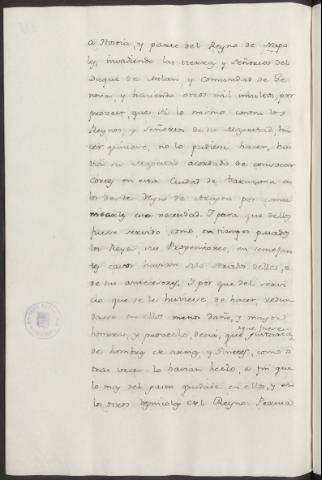 a Hostia, y parte del Reyno de Napo
les, invadiendo las tierras y Señorios del
Duque de Milan y Comunidad de Ge
nova, y haciendo otros mil insultos, por
proveer, que si lo mismo contra los
Reynos, y Señorios de su Magestad, in
tentar quisiere, no lo pudiese hacer, ha
bia su Magestad acordado de convocar
Cortes en esta Ciudad de Tarazona a
los de este Reyno de Aragon por comu
nicarles esta necesidad. I para que dellos
fuese servido, como, en tiempos pasados
los Reyes, sus Progenitores, en semejan
tes casos havian sido servidos dellos, o
de sus antecesores. I, por que del servi
cio que se le huviese de hacer, redun
dase en ellos menos daño, y mayor
honrra, y provecho, decia, que fuese
de hombres de armas, y Ginetes, como o
tras veces lo havian hecho, a fin que
lo mas del gasto quedase en ellos, y en
los otros Regnicolas del Reyno.